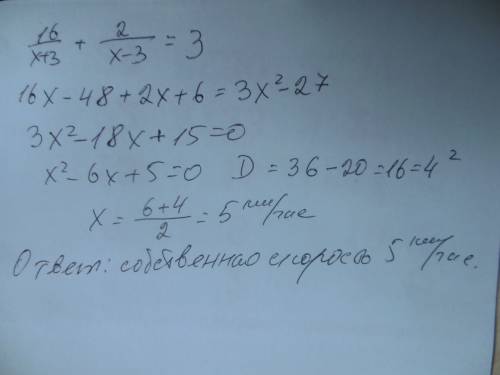 16/(x+3) + 2/(x-3) = 3
16x - 48 + 2x + 6 = 3x² - 27
3x² - 18x + 15 = 0
x² - 6x + 5 = 0   D = 36 - 20 = 16 = 4²
x = (6+4)/2 = 5 км/час
Ответ: собственная скорость 5 км/час.